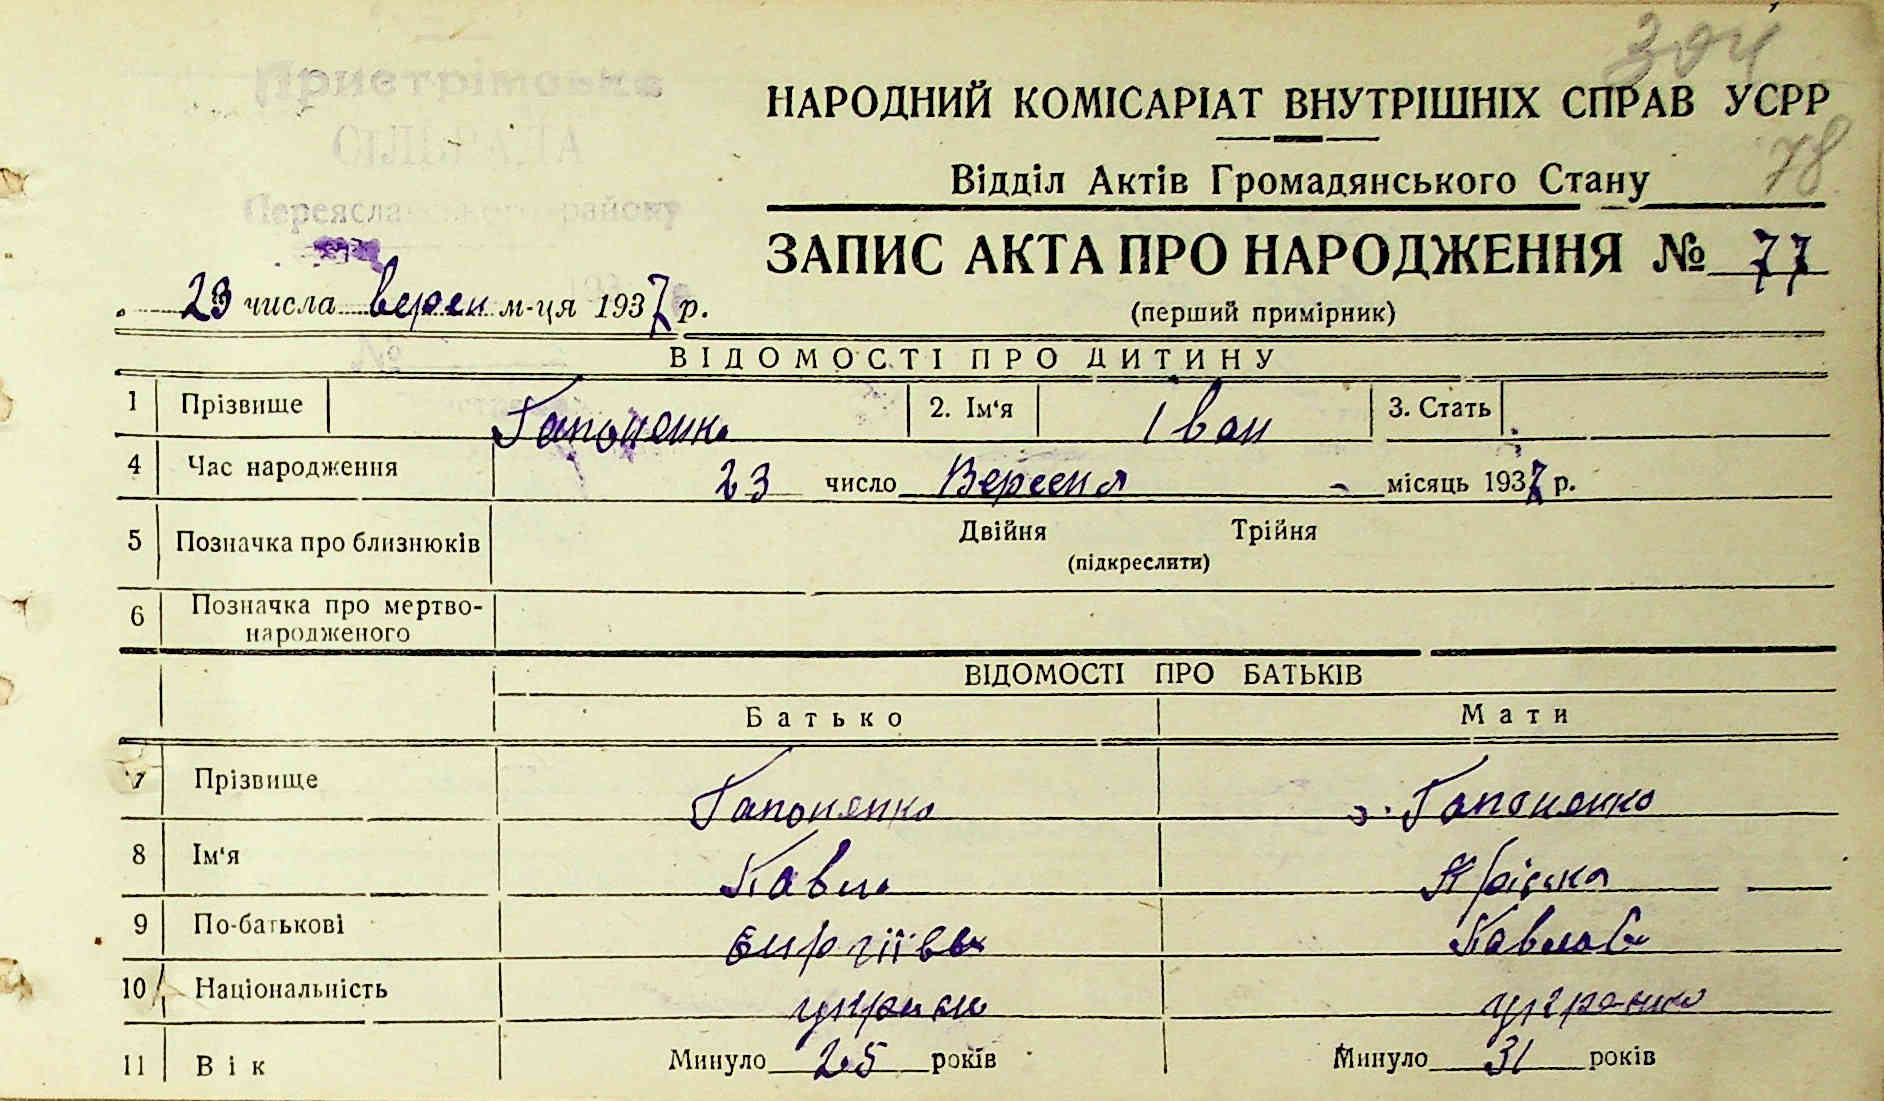 304
Пристрімська
СІЛЬРАДА
Переяславського району
НАРОДНИЙ КОМІСАРІАТ ВНУТРІШНІХ СПРАВ УСРР
78
Відділ Актів Громадянського Стану
ЗАПИС АКТА ПРО НАРОДЖЕННЯ № 77
23 числа верен м-ця 1937 р.
(перший примірник)
ВІДОМОСТІ ПРО ДИТИНУ
1 Прізвище Гапоненко 2. Ім'я Іван 3. Стать
4 Час народження 23 число Вересня місяць 1937 р.
5 Позначка про близнюків Двійня Трійня
(підкреслити)
6 Позначка про мертво-
народженого
ВІДОМОСТІ ПРО БАТЬКІВ
Батько Мати
7 Прізвище Гапоненко Гапоненко
8 Ім'я Павло
9 По-батькові Павлов
10 Національність
11 Вік Минуло 25 років Минуло 31 років